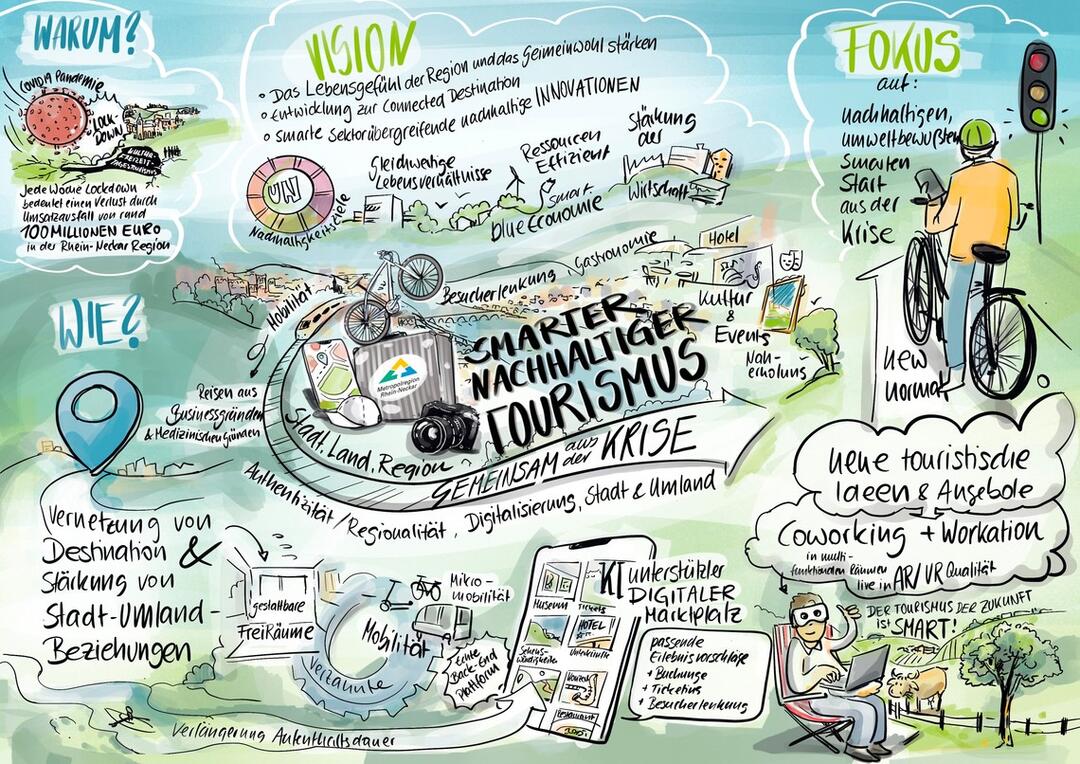 WARUM?
COVID19 Pandemie
LOCK
DOWN
KULTUR-
FREIZEIT-
TAGESTOURISMUS
Jede Woche Lockdown
bedeutet einen Verlust durch
Umsatzausfall von rund
100 MILLIONEN EURO
in der Rhein-Neckar Region
VISION
• Das Lebensgefühl der Region und das Gemeinwohl stärken
• Entwicklung zur Connected Destination
• smarte Sektorübergreifende nachhaltige INNOVATIONEN
UN
Nachhaltigkeitsziele
Gleichwertige
Lebensverhältnisse
Ressourcen
Effizient
Smart
blue Economie
Stärkung
der
Wirtschaft
FOKUS
auf:
nachhaltigen,
umweltbewußten
Smarten
Start
aus der
Krise
new
normal
Mobilität
Besucherlenkung
Gastronomie
Hotel
Kultur
&
Events
Nah-
erholung
SMARTER
NACHHALTIGER
TOURISMUS
Metropolregion
Rhein-Neckar
Stadt, Land, Region
GEMEINSAM aus der KRISE
Reisen aus
Businessgründen
& Medizinischen Gründen
Authentizität/Regionalität, Digitalisierung, Stadt & Umland
WIE?
Vernetzung von
Destination &
Stärkung von
Stadt-Umland-
Beziehungen
gestaltbare
FreiRäume
Mobilität
Verzahnte
Mikro-
mobilität
Echte
Back-End
Plattform
Verlängerung Aufenthaltsdauer
KI unterstützter
DIGITALER
Marktplatz
MUSEUM
TICKETS
HOTEL
Sehens-
würdigkeiten
Unterkünfte
Restaurant
passende
Erlebnisvorschläge
+ Buchunge
+ Ticketing
+ Besucherlenkung
neue touristische
Ideen & Angebote
Coworking + Workation
in multi-
funktionalen Räumen
live in AR/VR Qualität
DER TOURISMUS DER ZUKUNFT
ist SMART!